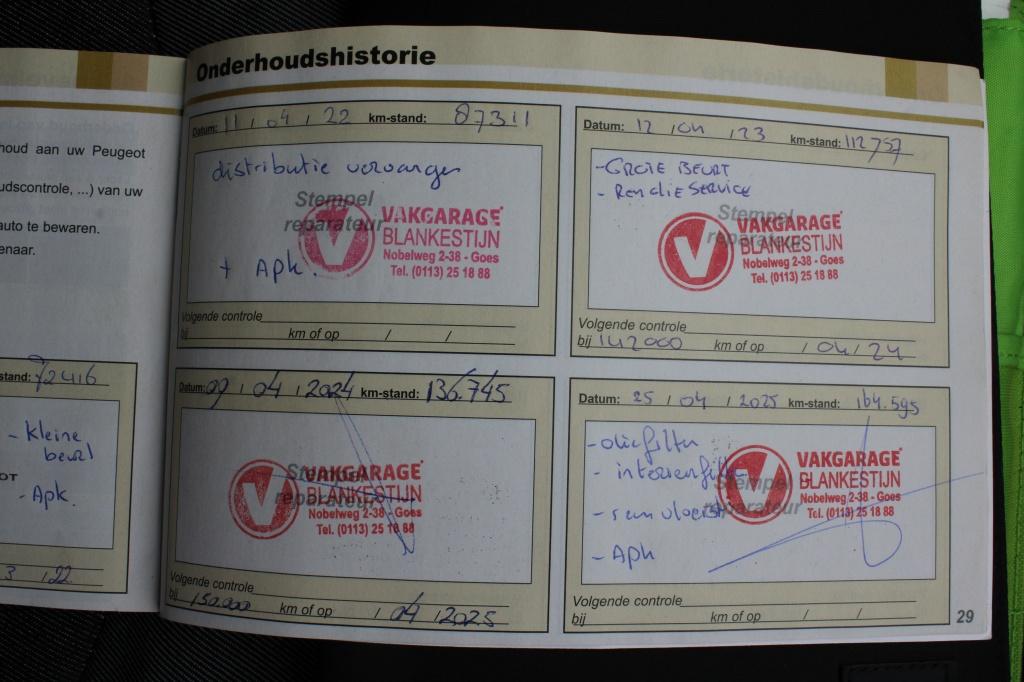 houd aan uw Peugeot
udscontrole, ...) van uw
auto te bewaren.
enaar.
stand: 72416
- Kleine
beurt
- Apk.
3 / 22
Onderhoudshistorie
Datum: 11 / 04 / 22 km-stand: 87311
distributie vervangen
Stempel
reparateur
VAKGARAGE
BLANKESTIJN
Nobelweg 2-38 - Goes
Tel. (0113) 25 18 88
+ Apk.
Volgende controle
bij km of op / /
Datum: 12 / 04 / 23 km-stand: 112757
- GROTE BEURT
- Remolie SERVICE
Stempel
reparateur
VAKGARAGE
BLANKESTIJN
Nobelweg 2-38 - Goes
Tel. (0113) 25 18 88
Volgende controle
bij 142000 km of op / 04 / 24
Datum: 09 / 04 / 2024 km-stand: 136.745
Stempel
reparateur
VAKGARAGE
BLANKESTIJN
Nobelweg 2-38 - Goes
Tel. (0113) 25 18 88
Volgende controle
bij 150.000 km of op / 04 / 2025
Datum: 25 / 04 / 2025 km-stand: 164.595
- oliefilter
- interieurfilter
- remvloeistof
- Apk
Stempel
reparateur
VAKGARAGE
BLANKESTIJN
Nobelweg 2-38 - Goes
Tel. (0113) 25 18 88
Volgende controle
bij km of op / /
29